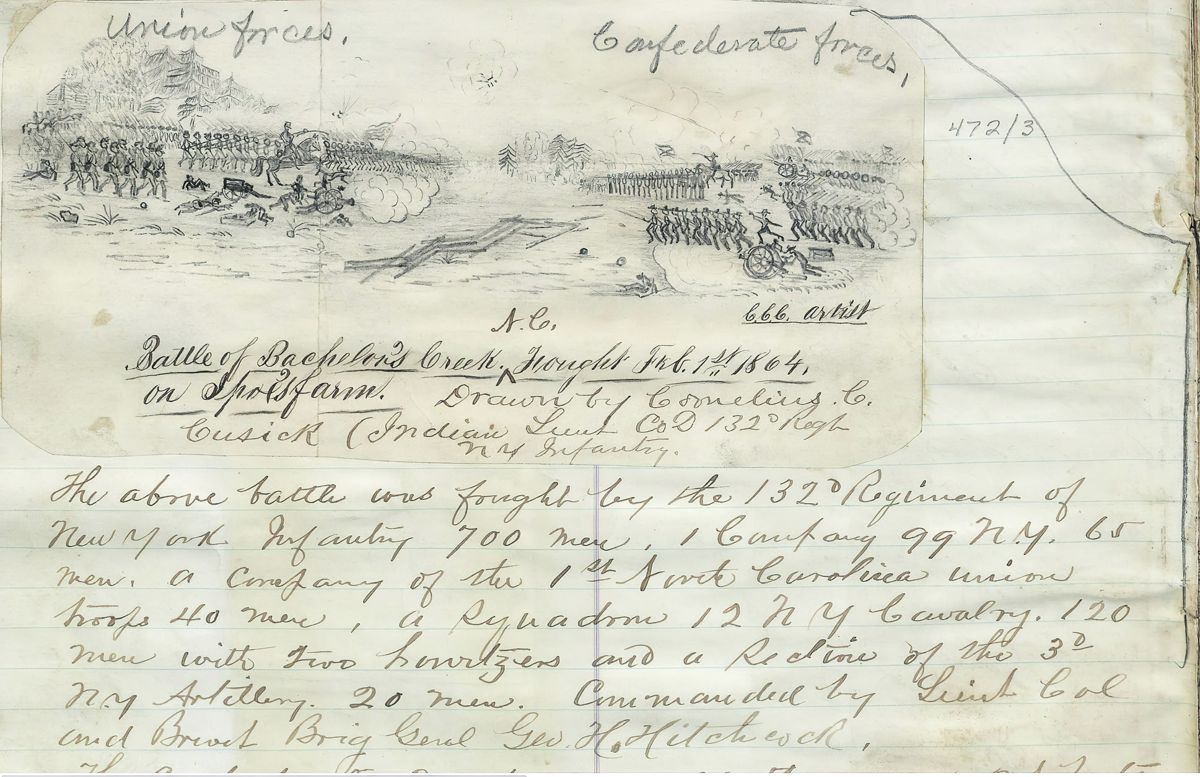 Union forces.
Confederate forces,
472/3
C.C.C. artist
N.C.
Battle of Bachelor's Creek. ^ Fought Feb. 1st 1864.
on farm. Drawn by Cornelius. C.
Cusick (Indian Lieut Co D 132D Regt
NY Infantry.
The above battle was fought by the 132D Regiment of
New York Infantry 700 men, 1 Company 99 N.Y. 65
men. a company of the 1st North Carolina union
troops 40 men, a Squadron 12 N Y Cavalry. 120
men with two howitzers and a Section of the 3D
NY Artillery. 20 men. Commanded by Lieut Col
and Brevet Brig Genl Geo. H. Hitchcock,
The